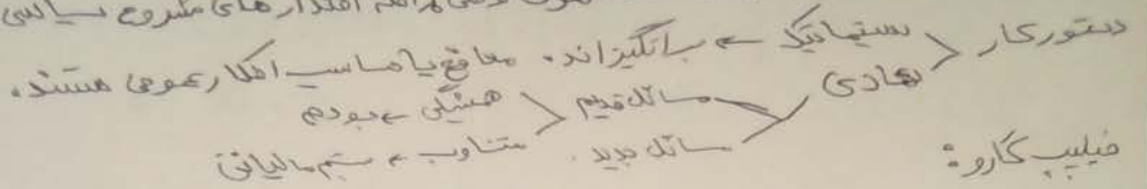 اقتدارهای مشروع سیاسی
دستور کار < سیستماتیک ← برانگیزاند. مواقع یا مناسب افکار عمومی هستند.
نهادی < مسائل قدیم < همیشگی ← بودجه
مسائل جدید. متناوب ← سیستم مالیاتی
فیلیپ گارو: